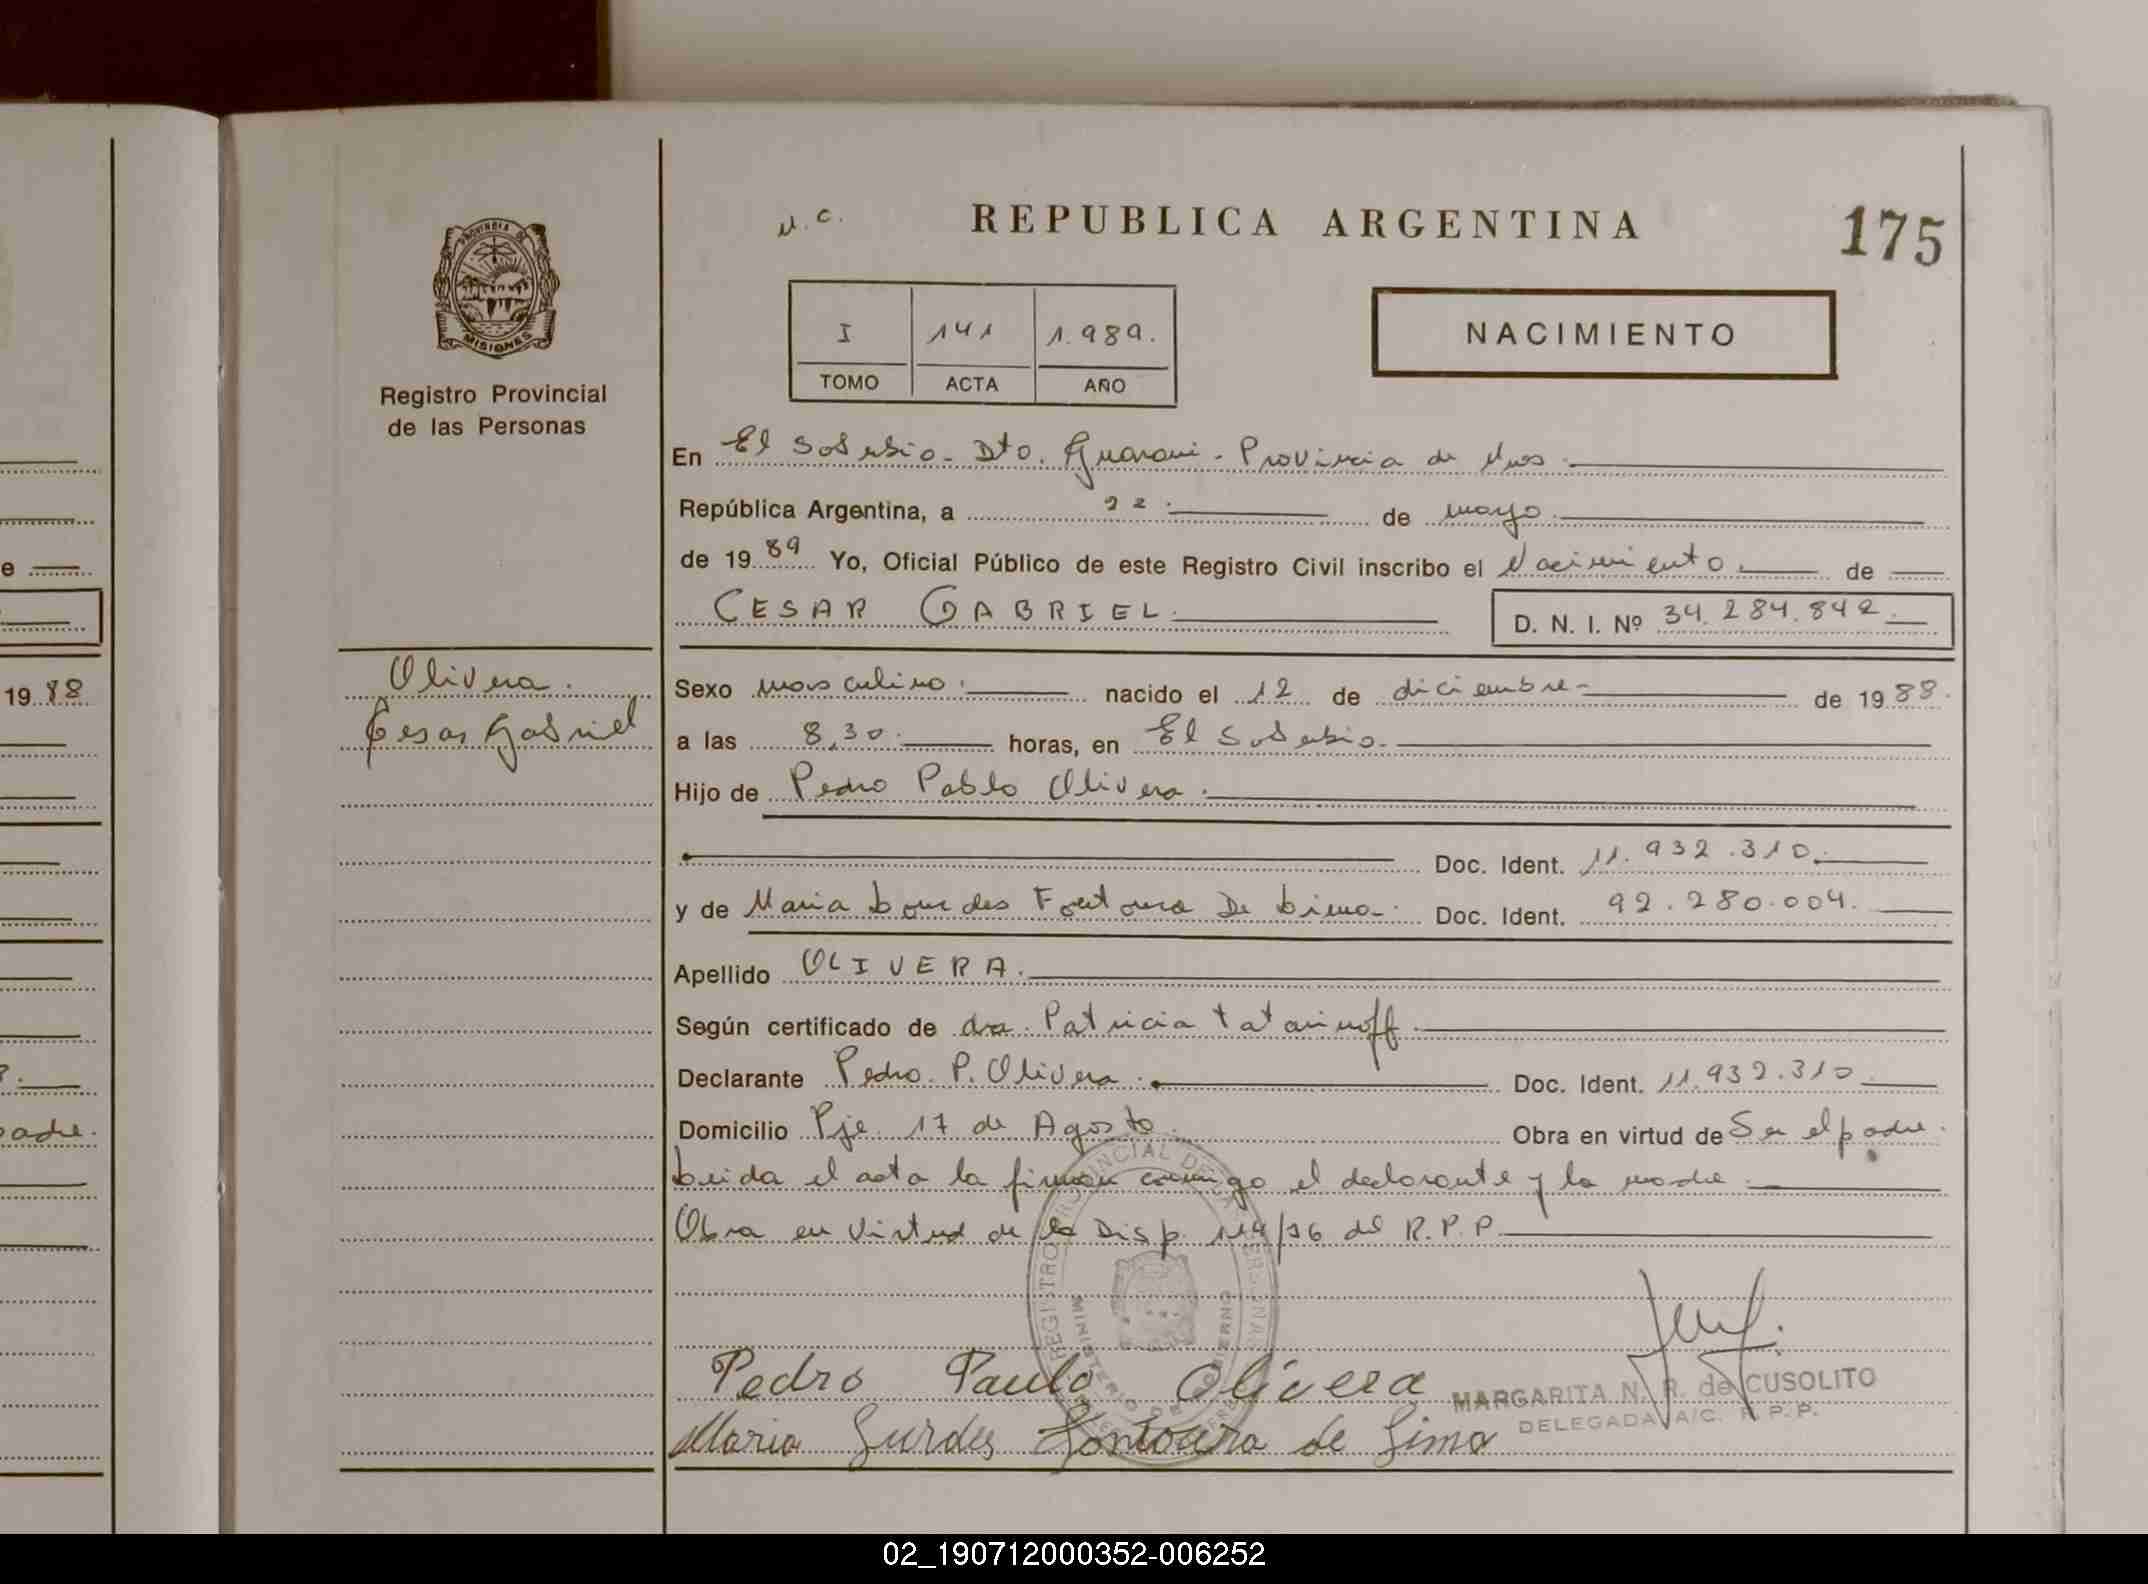 N.C.
REPUBLICA ARGENTINA
175
PROVINCIA DE
MISIONES
I 141 1.989.
TOMO ACTA AÑO
NACIMIENTO
Registro Provincial
de las Personas
En El Soberbio - Dto. Guarani - Provincia de Mnes.
República Argentina, a 22. de mayo.
de 1989 Yo, Oficial Público de este Registro Civil inscribo el Nacimiento de
CESAR GABRIEL.
D. N. I. Nº 34.284.842.
Olivera.
Cesar Gabriel
Sexo masculino. nacido el 12 de diciembre- de 1988.
a las 8,30. horas, en El Soberbio.
Hijo de Pedro Pablo Olivera.
Doc. Ident. 11.932.310.
y de Maria Lourdes Fontoura De Lima. Doc. Ident. 92.280.004.
Apellido OLIVERA.
Según certificado de dra. Patricia Tatarinoff.
Declarante Pedro. P. Olivera. Doc. Ident. 11.932.310
Domicilio Pje. 17 de Agosto. Obra en virtud de Ser el padre.
Leida el acta la firman conmigo el declarante y la madre.
Obra en virtud de la Disp. 114/76 del R.P.P.
REGISTRO PROVINCIAL DE LAS PERSONAS
MINISTERIO DE GOBIERNO
Pedro Paulo Olivera
Maria Lurdes Fontoura de Lima
MARGARITA N. R. de CUSOLITO
DELEGADA A/C. R.P.P.
e
19.88
padre.
02_190712000352-006252